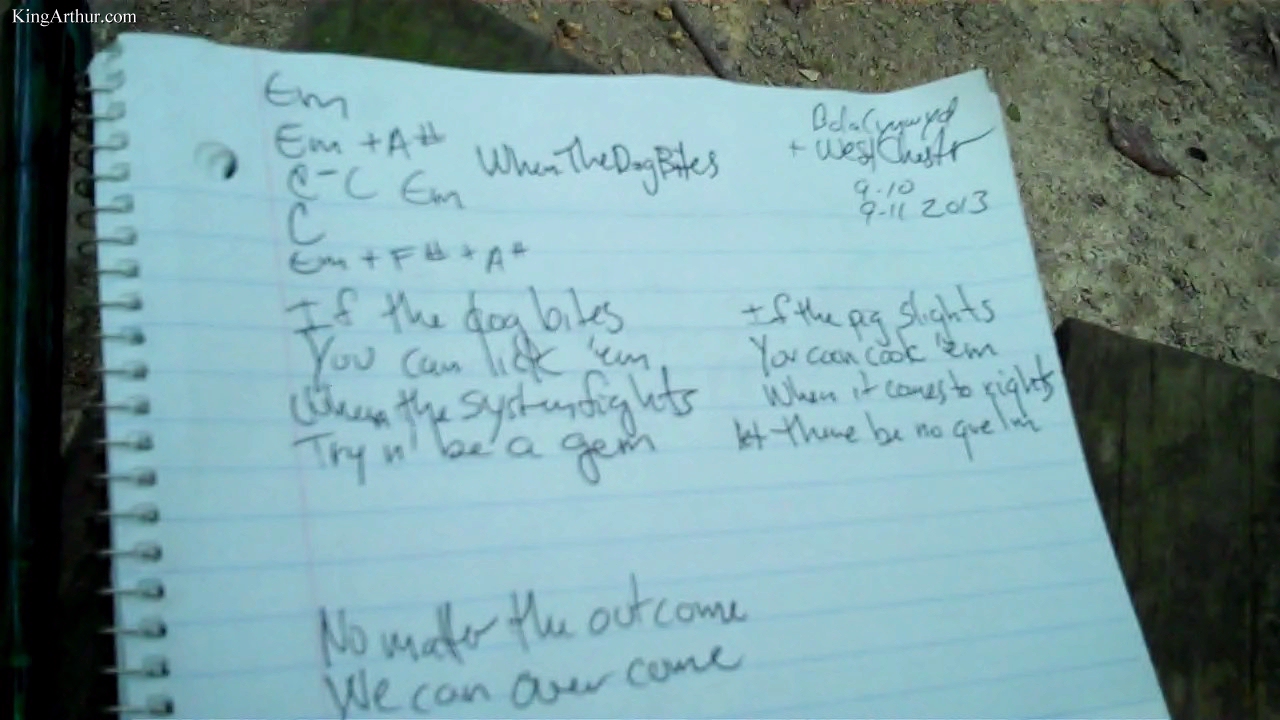 KingArthur.com
Em
Em + A#
C-C Em
C
Em + F# + A#
When The Dog Bites
Bala Cynwyd
+ West Chestr
9-10
9-11 2013
If the dog bites
You can lick 'em
When the system fights
Try n' be a gem
If the pig slights
You can cook 'em
When it comes to rights
let there be no qualm
No matter the outcome
We can over come